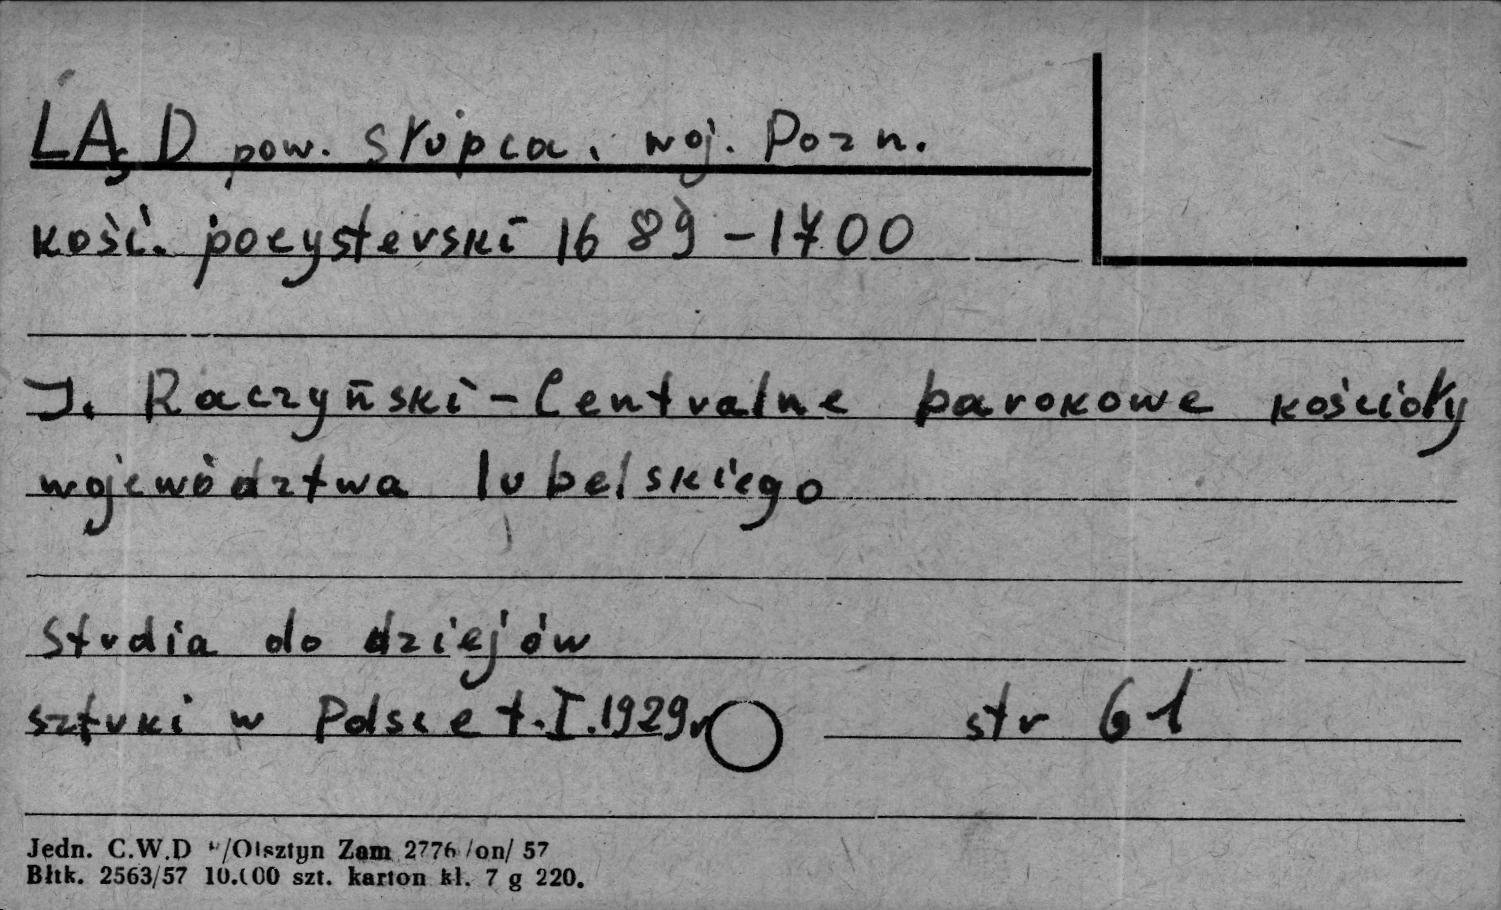 LĄD pow. Słupca, woj. Pozn.
kość. pocysterski 1689-1700
J. Raczyński - Centralne barokowe kościoły
województwa lubelskiego
Studia do dziejów
sztuki w Polsce t.I.1929r
str 61
Jedn. C.W.D /Olsztyn Zam 2776 /on/ 57
Błtk. 2563/57 10.000 szt. karton kl. 7 g 220.